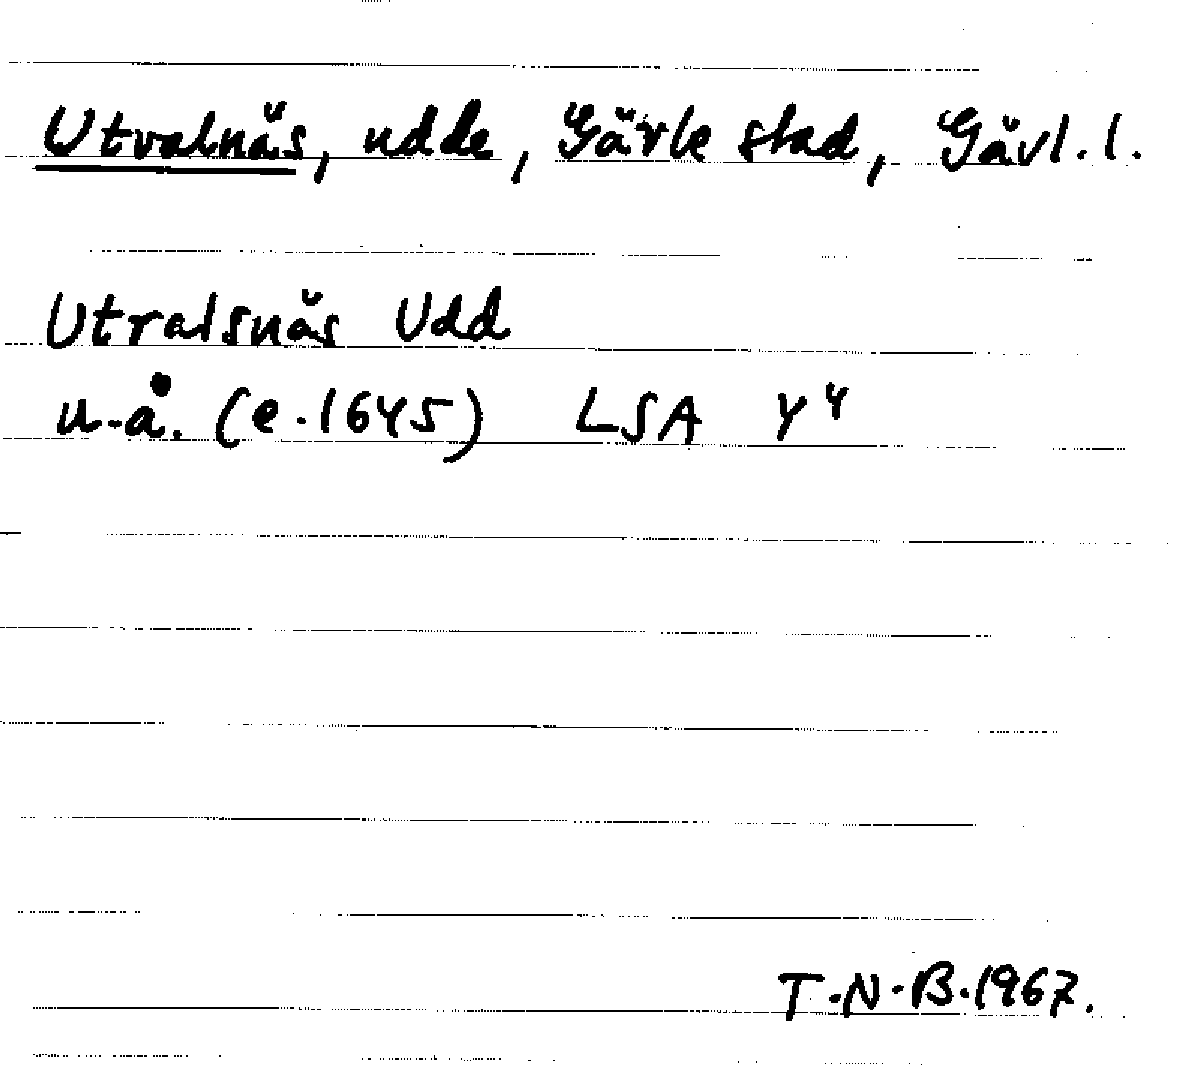 Utvalnäs, udde, Gävle stad, Gävl.l.
Utvalsnäs Udd
u.å. (e.1645) LSA Y4
T.N.B.1967.